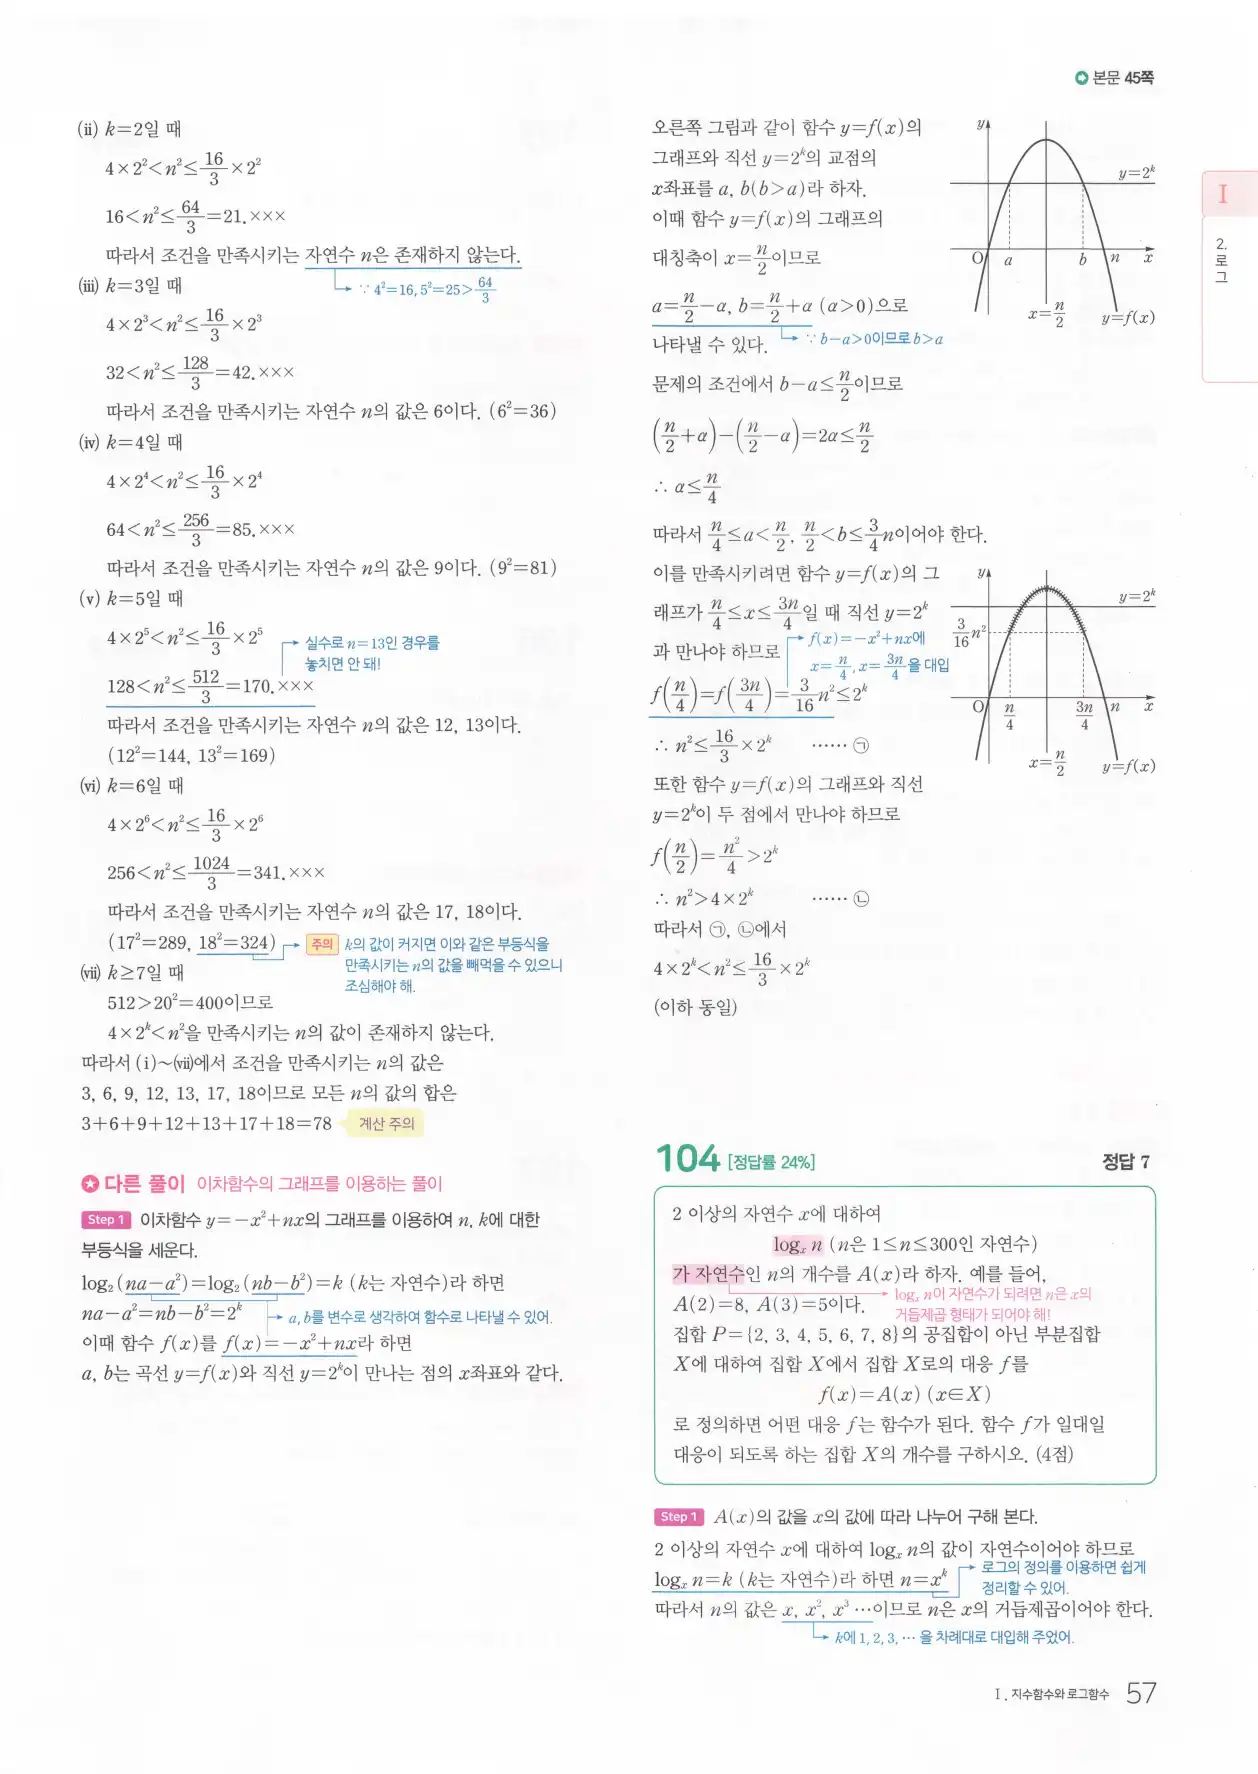 본문 45쪽
(ii) k=2일 때
4×2²<n²≤16/3×2²
16<n²≤64/3=21.×××
따라서 조건을 만족시키는 자연수 n은 존재하지 않는다.
∵ 4²=16, 5²=25>64/3
(iii) k=3일 때
4×2³<n²≤16/3×2³
32<n²≤128/3=42.×××
따라서 조건을 만족시키는 자연수 n의 값은 6이다. (6²=36)
(iv) k=4일 때
4×2⁴<n²≤16/3×2⁴
64<n²≤256/3=85.×××
따라서 조건을 만족시키는 자연수 n의 값은 9이다. (9²=81)
(v) k=5일 때
4×2⁵<n²≤16/3×2⁵
실수로 n=13인 경우를
놓치면 안 돼!
128<n²≤512/3=170.×××
따라서 조건을 만족시키는 자연수 n의 값은 12, 13이다.
(12²=144, 13²=169)
(vi) k=6일 때
4×2⁶<n²≤16/3×2⁶
256<n²≤1024/3=341.×××
따라서 조건을 만족시키는 자연수 n의 값은 17, 18이다.
(17²=289, 18²=324)
주의 k의 값이 커지면 이와 같은 부등식을
만족시키는 n의 값을 빼먹을 수 있으니
조심해야 해.
(vii) k≥7일 때
512>20²=400이므로
4×2ᵏ<n²을 만족시키는 n의 값이 존재하지 않는다.
따라서 (i)~(vii)에서 조건을 만족시키는 n의 값은
3, 6, 9, 12, 13, 17, 18이므로 모든 n의 값의 합은
3+6+9+12+13+17+18=78 계산 주의
✪ 다른 풀이 이차함수의 그래프를 이용하는 풀이
Step 1 이차함수 y=−x²+nx의 그래프를 이용하여 n, k에 대한
부등식을 세운다.
log₂(na−a²)=log₂(nb−b²)=k (k는 자연수)라 하면
na−a²=nb−b²=2ᵏ
a, b를 변수로 생각하여 함수로 나타낼 수 있어.
이때 함수 f(x)를 f(x)=−x²+nx라 하면
a, b는 곡선 y=f(x)와 직선 y=2ᵏ이 만나는 점의 x좌표와 같다.
오른쪽 그림과 같이 함수 y=f(x)의
그래프와 직선 y=2ᵏ의 교점의
x좌표를 a, b(b>a)라 하자.
이때 함수 y=f(x)의 그래프의
대칭축이 x=n/2이므로
a=n/2−α, b=n/2+α (α>0)으로
∵ b−a>0이므로 b>a
나타낼 수 있다.
y
y=2ᵏ
O a b n x
x=n/2 y=f(x)
문제의 조건에서 b−a≤n/2이므로
(n/2+α)−(n/2−α)=2α≤n/2
∴ α≤n/4
따라서 n/4≤a<n/2, n/2<b≤3/4n이어야 한다.
이를 만족시키려면 함수 y=f(x)의 그
래프가 n/4≤x≤3n/4일 때 직선 y=2ᵏ
과 만나야 하므로
f(x)=−x²+nx에
x=n/4, x=3n/4을 대입
f(n/4)=f(3n/4)=3/16n²≤2ᵏ
∴ n²≤16/3×2ᵏ ······ ㉠
y
y=2ᵏ
3/16n²
O n/4 3n/4 n x
x=n/2 y=f(x)
또한 함수 y=f(x)의 그래프와 직선
y=2ᵏ이 두 점에서 만나야 하므로
f(n/2)=n²/4>2ᵏ
∴ n²>4×2ᵏ ······ ㉡
따라서 ㉠, ㉡에서
4×2ᵏ<n²≤16/3×2ᵏ
(이하 동일)
104 [정답률 24%] 정답 7
2 이상의 자연수 x에 대하여
logₓ n (n은 1≤n≤300인 자연수)
가 자연수인 n의 개수를 A(x)라 하자. 예를 들어,
logₓ n이 자연수가 되려면 n은 x의
거듭제곱 형태가 되어야 해!
A(2)=8, A(3)=5이다.
집합 P={2, 3, 4, 5, 6, 7, 8}의 공집합이 아닌 부분집합
X에 대하여 집합 X에서 집합 X로의 대응 f를
f(x)=A(x) (x∈X)
로 정의하면 어떤 대응 f는 함수가 된다. 함수 f가 일대일
대응이 되도록 하는 집합 X의 개수를 구하시오. (4점)
Step 1 A(x)의 값을 x의 값에 따라 나누어 구해 본다.
2 이상의 자연수 x에 대하여 logₓ n의 값이 자연수이어야 하므로
logₓ n=k (k는 자연수)라 하면 n=xᵏ
로그의 정의를 이용하면 쉽게
정리할 수 있어.
따라서 n의 값은 x, x², x³ ⋯이므로 n은 x의 거듭제곱이어야 한다.
k에 1, 2, 3, ⋯ 을 차례대로 대입해 주었어.
I
2.
로
그
I. 지수함수와 로그함수 57